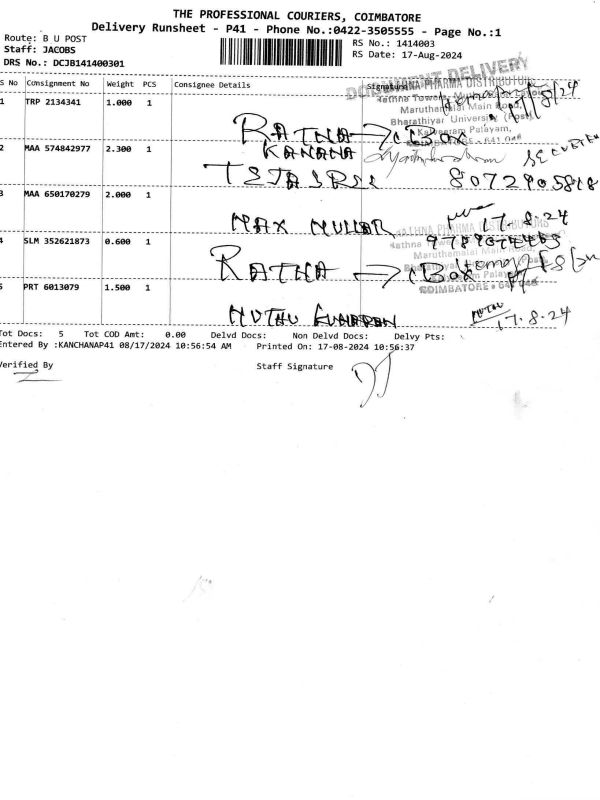 THE PROFESSIONAL COURIERS, COIMBATORE
Delivery Runsheet - P41 - Phone No.:0422-3505555 - Page No.:1
Route: B U POST
RS No.: 1414003
Staff: JACOBS
RS Date: 17-Aug-2024
DRS No.: DCJB141400301
S No Consignment No Weight PCS Consignee Details Signature
DOCUMENT DELIVERY
1 TRP 2134341 1.000 1
RATNA → Box
Maruthamalai Main Road,
Bharathiyar University (Post)
Kalveeram Palayam,
2 MAA 574842977 2.300 1
KANANA
8072905818
3 MAA 650170279 2.000 1
MAX MULLAR
17.8.24
RATHNA PHARMA DISTRIBUTORS
4 SLM 352621873 0.600 1
RATNA → Box
COIMBATORE
5 PRT 6013079 1.500 1
MUTHU
17.8.24
Tot Docs: 5 Tot COD Amt: 0.00 Delvd Docs: Non Delvd Docs: Delvy Pts:
Entered By :KANCHANAP41 08/17/2024 10:56:54 AM Printed On: 17-08-2024 10:56:37
Verified By
Staff Signature